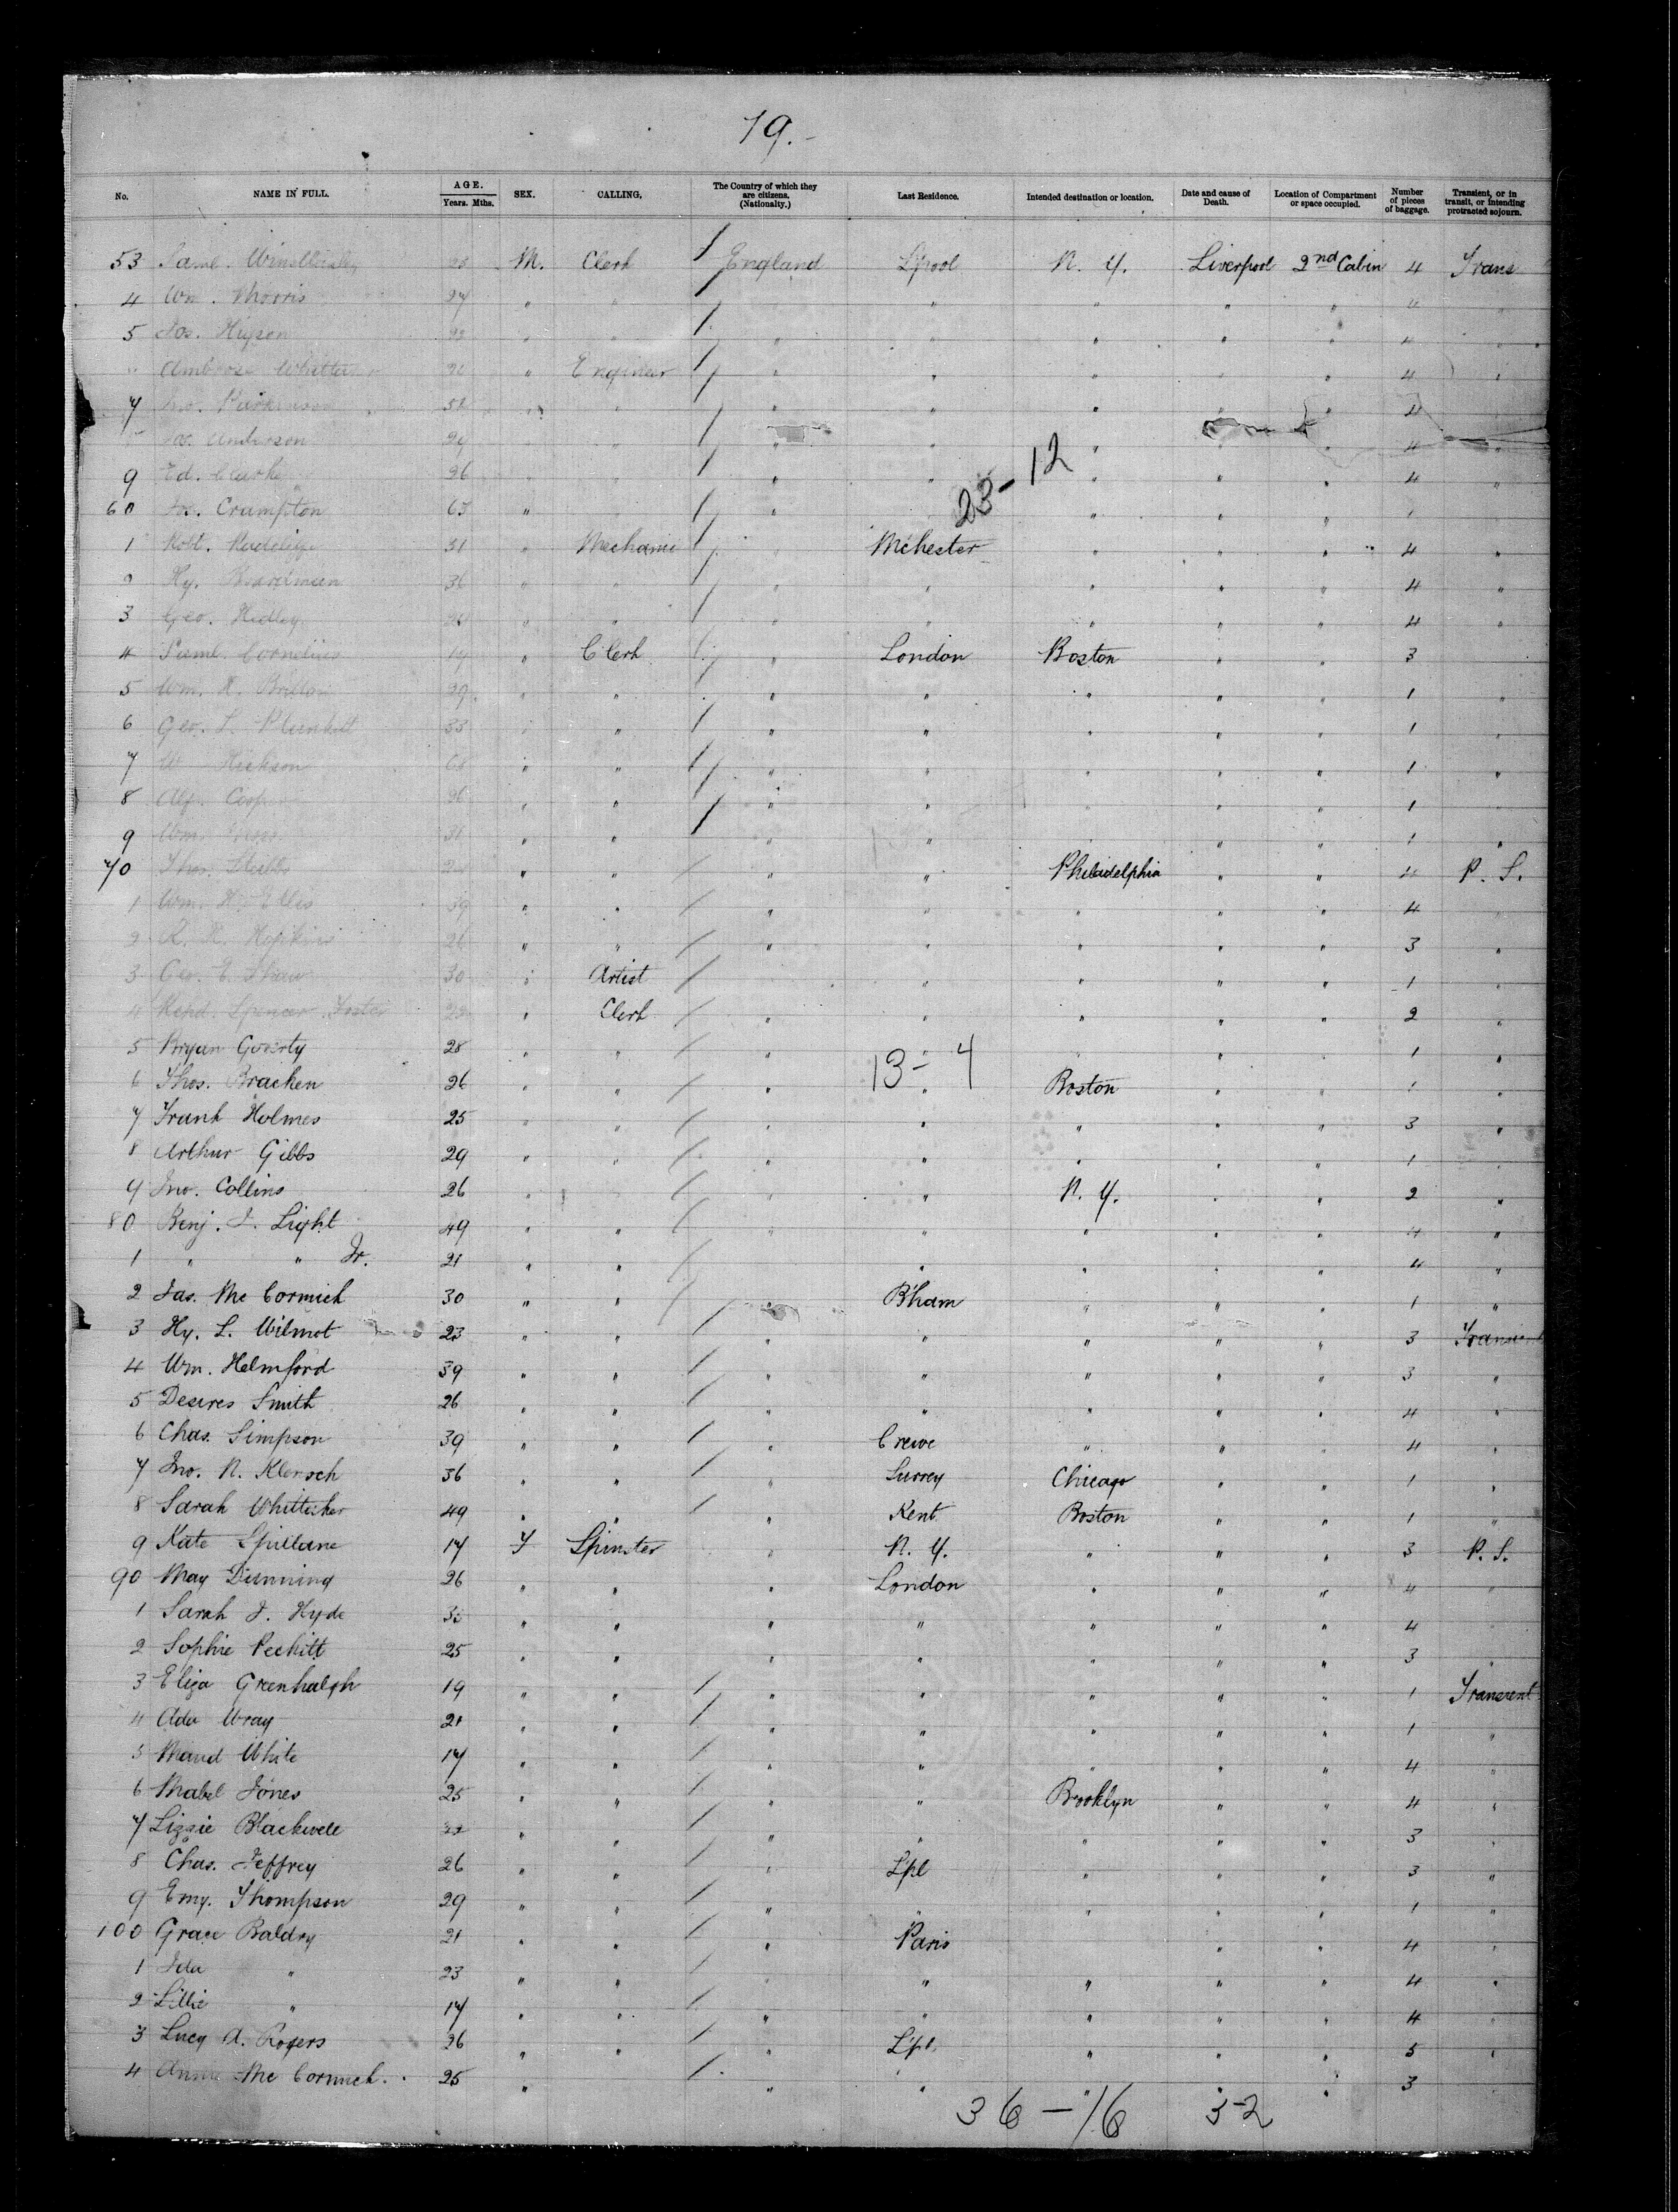 19.-
No. NAME IN FULL. AGE. Years. Mths. SEX. CALLING. The Country of which they are citizens. (Nationalty.) Last Residence. Intended destination or location. Date and cause of Death. Location of Compartment or space occupied. Number of pieces of baggage. Transient, or in transit, or intending protracted sojourn.
53 Saml. M. Clerk / England L'pool N. Y. Liverpool 2nd Cabin 4 Trans
4 Wm. Morris 27 " " / " " " " " 4 "
5 Jos. " " / " " " " " 4 "
Ambrose " Engineer / " " " " " 4 "
7 Jno. Parkinson " " / " " " " " 4 "
Jas. Anderson 24 " " / " " " " " 4 "
9 Ed. Clarke 26 " " / " " " " " 4 "
23-12
60 Jos. Crampton 65 " " / " " " " " 1 "
1 Robt. 31 " Mechanic / " M'chester " " " 4 "
2 Hy. Boardman 36 " " / " " " " " 4 "
3 Geo. Hedley " " / " " " " " 4 "
4 Saml. Cornelius 19 " Clerk / " London Boston " " 3
5 Wm. H. 39 " " / " " " " " 1 "
6 Geo. S. Plunkett 33 " " / " " " " " 1 "
7 W Hickson 68 " " / " " " " " 1 "
8 Alf. Cooper 26 " " / " " " " " 1
9 Wm. 31 " " / " " " " " 1 "
70 Thos. Stubbs " " / " " Philadelphia " " 4 P. S.
1 Wm. H. Ellis 39 " " / " " " " " 4 "
2 R. H. Hopkins 26 " " / " " " " " 3 "
3 Geo. E. Shaw 30 " Artist / " " " " " 1 "
4 Richd. Spencer Foster " Clerk / " " " " " 2 "
5 Bryan Goverty 28 " " / " " " " " 1 "
13-4
6 Thos. Bracken 26 " " / " " Boston " " 1 "
7 Frank Holmes 25 " " / " " " " " 3 "
8 Arthur Gibbs 29 " " / " " " " " 1 "
9 Jno. Collins 26 " " / " " N. Y. " " 2 "
80 Benj. J. Light 49 " " / " " " " " 4 "
1 " " Jr. 21 " " / " " " " 4 "
2 Jas. Mc Cormick 30 " " / " B'ham " " " 1 "
3 Hy. L. Wilmot 23 " " / " " " " " 3 Transient
4 Wm. Helmford 39 " " / " " " " " 3 "
5 Desires Smith 26 " " / " " " " " 4 "
6 Chas. Simpson 39 " " / " Crewe " " " 4 "
7 Jno. N. Klersch 36 " " / " Surrey Chicago " " 1 "
8 Sarah Whittaker 49 " " / " Kent Boston " " 1 "
9 Kate Spillane 17 F Spinster " N. Y. " " " 3 P. S.
90 May Dunning 26 " " " London " " " 4 "
1 Sarah J. Hyde " " " " " " " 4
2 Sophie Peckitt 25 " " " " " " " 3 "
3 Eliza Greenhalgh 19 " " / " " " " " 1 Transient
4 Ada Wray 21 " " / " " " " " 1 "
5 Maud White 17 " " / " " " " " 4 "
6 Mabel Jones 25 " " / " " Brooklyn " " 4 "
7 Lizzie Blackwell 22 " " / " " " " " 3 "
8 Chas. Jeffrey 26 " " / " L'pl " " " 3 "
9 Emy. Thompson 29 " " / " " " " " 1 "
100 Grace Baldry 21 " " / " Paris " " 4 "
1 Ida " 23 " " / " " " " " 4 "
2 Lillie " 17 " " / " " " " " 4 "
3 Lucy A. Rogers 26 " " / " L'pl. " " " 5 "
4 Annie Mc Cormick. 25 " / " " " " " 3
36-16 32